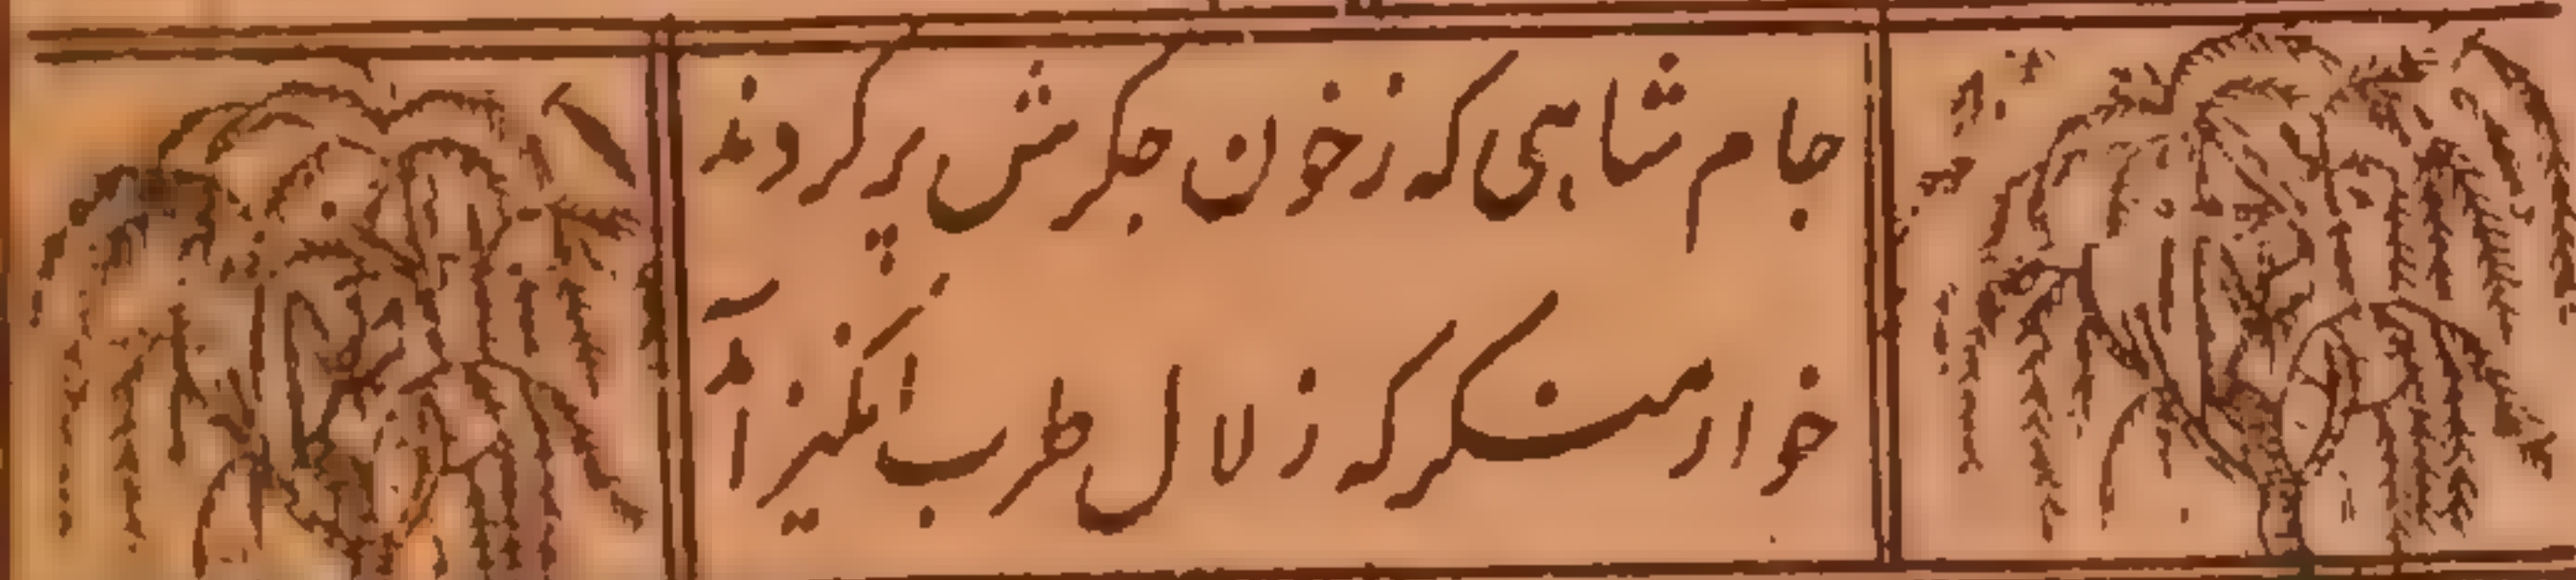 جام شاهی که ز خون جگرش پر کردند
خوار منگر که زلال طرب انگیز آمد